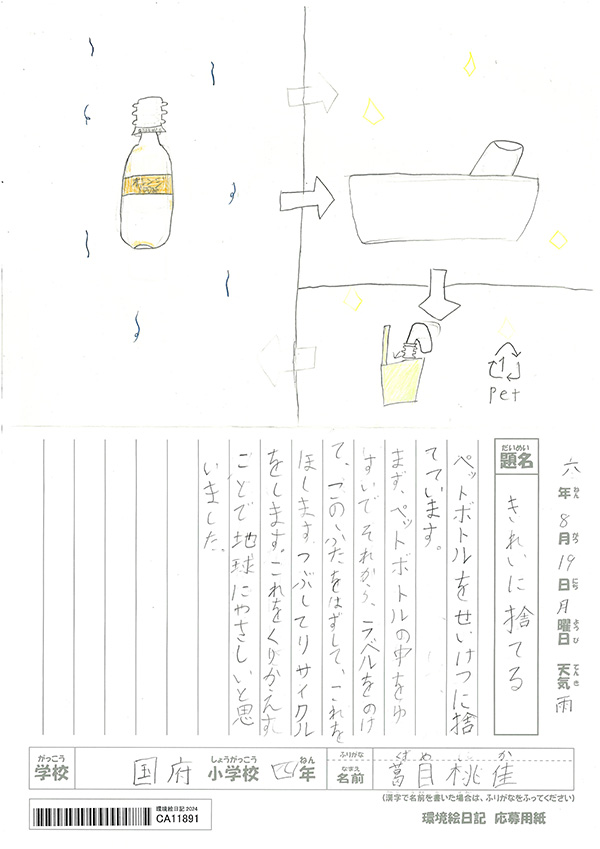 オレンジ
pet
六年8月19日月曜日 天気雨
ねん がつ にち ようび てんき
だいめい
題名 きれいに捨てる
ペットボトルをせいけつに捨
てています。
まず、ペットボトルの中をゆ
すいでそれから、ラベルをのけ
て、このふたをはずして、これを
ほします。つぶしてリサイクル
をします。これをくりかえす
ことで地球にやさしいと思
いました。
がっこう しょうがっこう ねん
学校 国府 小学校 四年
ふりがな
なまえ
名前 葛目桃佳
(漢字で名前を書いた場合は、ふりがなをふってください)
環境絵日記2024
CA11891
環境絵日記 応募用紙